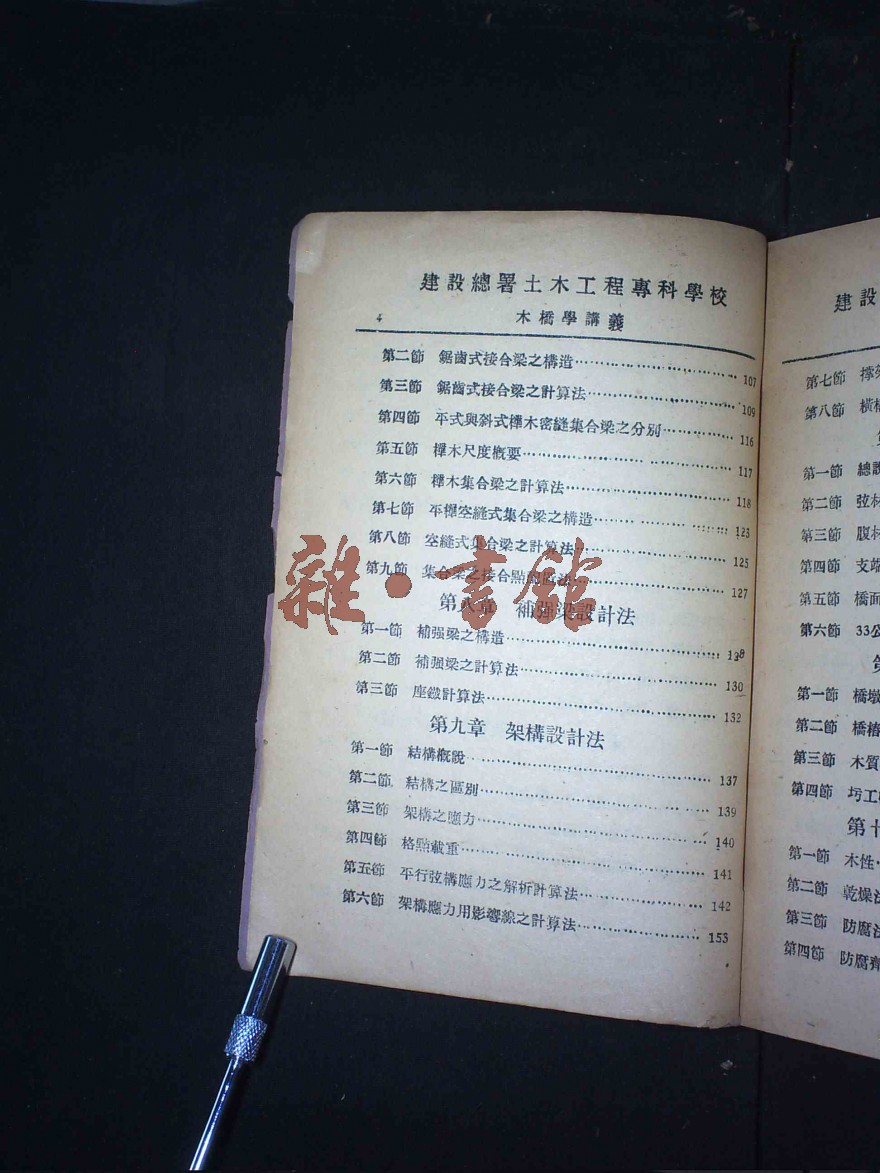 建設總署土木工程專科學校
4 木橋學講義
第二節 鋸齒式接合梁之構造 107
第三節 鋸齒式接合梁之計算法 109
第四節 平式與斜式榫木密縫集合梁之分別 116
第五節 榫木尺度概要 117
第六節 榫木集合梁之計算法 118
第七節 平榫空縫式集合梁之構造 123
第八節 空縫式集合梁之計算法 125
第九節 集合梁之接合點 127
第八章 補强梁設計法
第一節 補强梁之構造 128
第二節 補强梁之計算法 130
第三節 座鐵計算法 132
第九章 架構設計法
第一節 結構概說 137
第二節 結構之區別 139
第三節 架構之應力 140
第四節 格點載重 141
第五節 平行弦構應力之解析計算法 142
第六節 架構應力用影響線之計算法 153
雜·書館
建設
第七節
第八節 橫
第一節 總說
第二節 弦材
第三節 腹材
第四節 支端
第五節 橋面
第六節 33公
第一節 橋墩
第二節 橋樁
第三節 木質
第四節 圬工
第十
第一節 木性
第二節 乾燥法
第三節 防腐法
第四節 防腐劑